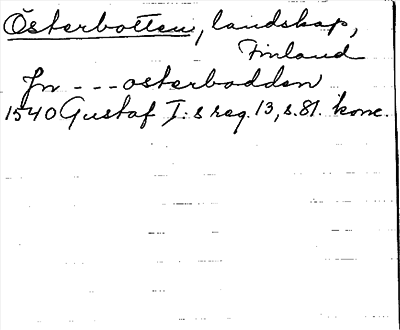 Österbotten, landskap,
Finland
Jn - - - osterbodden
1540 Gustaf I:s reg. 13, s. 81. konc.